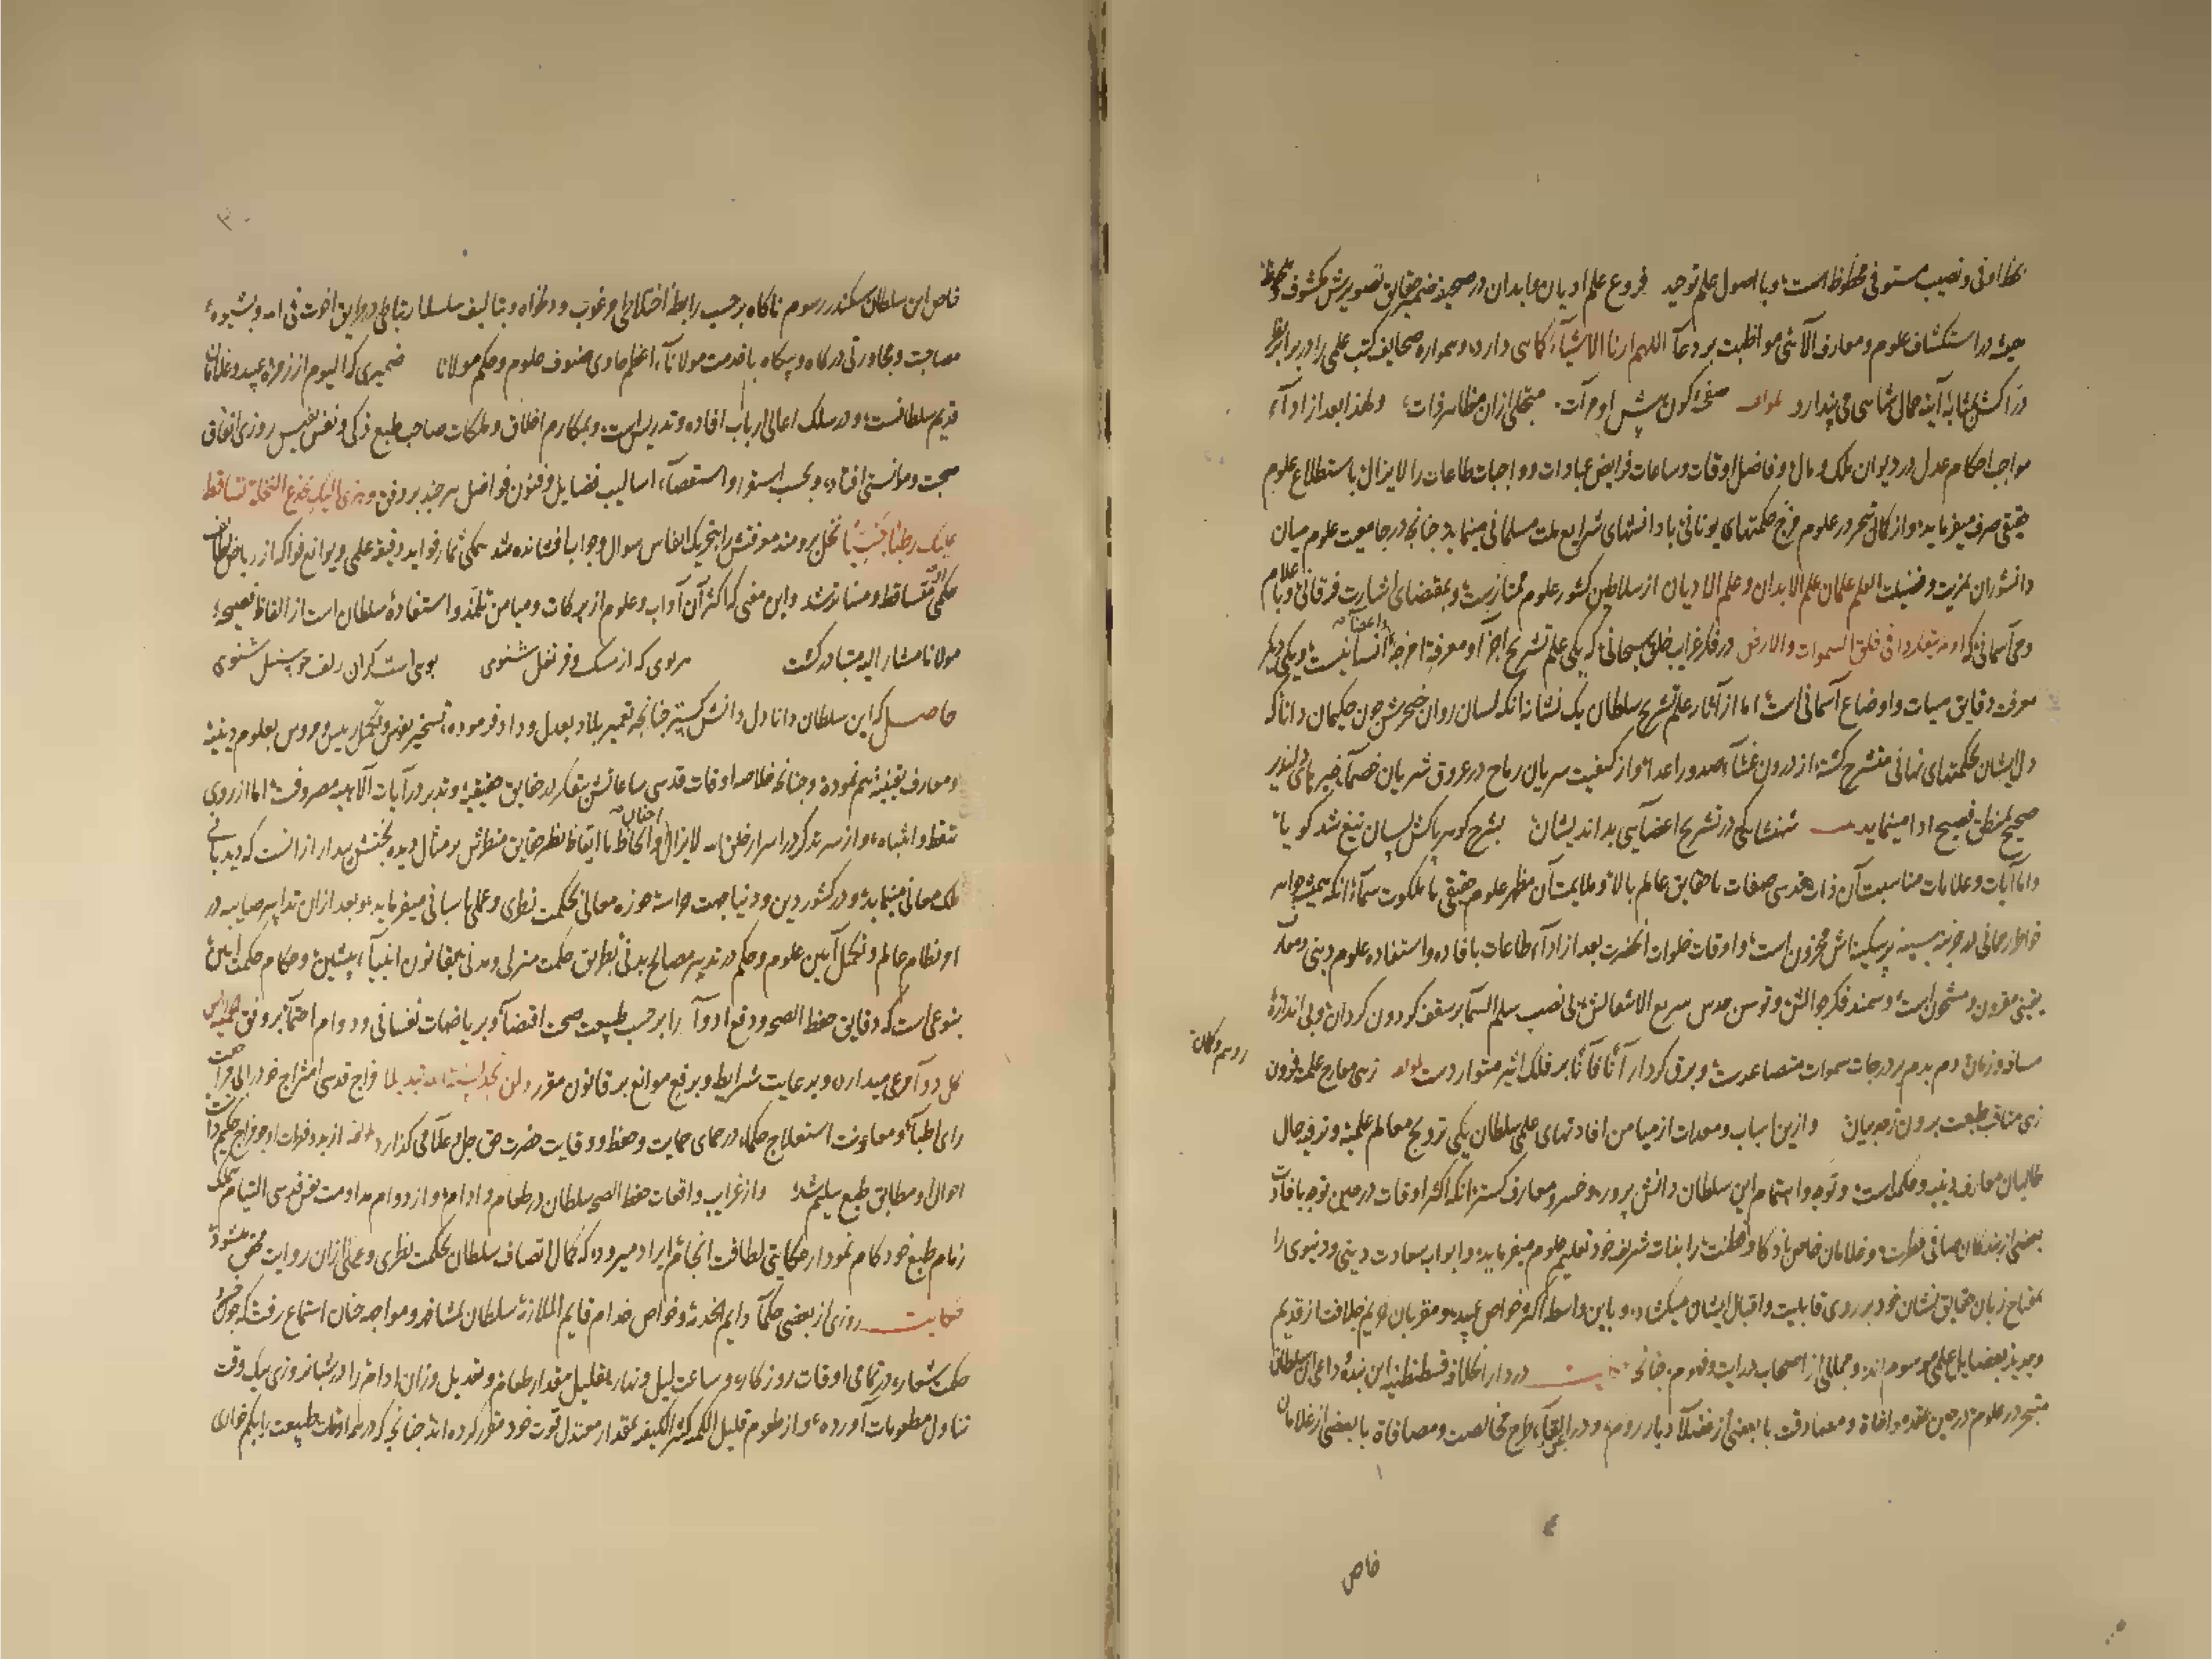 بحظ اوفی و نصیب مستوفی محظوظ است و با اصول علم توحید فروع علم ادیان و ابدان در صحیفه ضمیر حقایق تصویرش مکشوف و ملحوظ
همیشه در استکشاف علوم و معارف الآشی مواظبت بر دعآء اللهم ارنا الاشیآء کماهی دارد و همواره صحایف کتب علمی را در برابر نظر
دراکش بمثابه آینه جمال شاهی می پندارد لمولفه صفحه کون پیش او مرآت متجلی ازان مظاهر ذات و لهذا بعد از ادآء
مواجب احکام عدل در دیوان ملک و مال و فاضل اوقات و ساعات فرایض عبادات و واجبات طاعات را لایزال باستطلاع علوم
حقیقی صرف میفرماید و از کمال تبحر در علوم مزج حکمتهای یونانی با دانشهای شرایع ملت مسلمانی مینماید چنانچه در جامعیت علوم میان
دانشوران بمزیت و فضیلت العلم علمان علم الابدان و علم الادیان از سلاطین کشور علوم ممتازست و بمقتضای اشارت فرقانی و باعلام
وحی آسمانی که اولم یتفکروا فی خلق السموات والارض در فکر غرایب خلق سبحانی که یکی علم تشریح اجزآ و معرفت امزجه و اعضآء انسانیست و یکی دیگر
معرفت دقایق هیات و اوضاع آسمانی است اما از آثار علم تشریح سلطان یک نشانه انکه لسان روان خنجرش چون حکیمان دانا که
دل ایشان بحکمتهای نهانی منشرح گشته از درون غشآء صدور اعدا و از کیفیت سریان ریاح در عروق شریان خصمآ خبر مافی الضمیر
صحیح بمنطق فصیح ادا مینماید شهنشاهی که در تشریح اعضآیی بد اندیشان بشرح کوهر پاکش لسان تیغ شد کویا
و اما آیات و علامات مناسبت آن ذات قدسی صفات با حقایق عالم بالا و علایمت آن مظهر علوم حقیقی با ملکوت سمآء انکه همیشه جواهر
خواطر رحمانی در خزینه سینه پر سکینه اش مخزون است و اوقات خلوات انحضرت بعد از ادآء طاعات بافاده و استفاده علوم دینی و معارف
یقینی مقرون و مشحون است و سمند فکر جوالش و توسن حدس سریع الانتقالش بی نصب سلم السمآء بر سقف کردون کردان و بی اندازه
مسافت و زمان دم بدم بر درجات سموات متصاعدست و برق کردار آنا فآنا بر فلک اثیر متوارد است لمولفه زهی معارج علمت فزون
ز وهم و کمان
زهی مناقب طبعت برون ز حد بیان و ازین اسباب و معدات از میامن افادتهای علمی سلطان یکی ترویج معالم علمیه و ترفیه حال
طالبان معارف دینیه و حکمیه است و توجه و اهتمام این سلطان دانش پرور و خسرو معارف کستر انکه اکثر اوقات در حین توجه بافادت
بعضی از بندکان صافی فطرت و غلامان خاص با ذکا و فطنت را بذات شریف خود تعلیم علوم میفرماید و ابواب سعادت دینی و دنیوی را
بمفتاح زبان حقایق نشان خود بر روی قابلیت و اقبال ایشان میکشاید و باین واسطه اکثر خواص عبید و مقربان حریم خلافت از قدیم
و جدید بفضایل علمی موسوم اند و بجمالی از اصحاب درایت و فهوم چنانچه حکایت در دار الخلافه قسطنطنیه این بنده داعی ان سلطان
متبحر در علوم در حین عقد مواخاة و مصادقت با بعضی از فضلآء دیار روم و در القآء طرح مخالصت و مصافاة با بعضی از غلامان
خاص
خاص این سلطان سکندر رسوم ناکاه بر حسب رابطه اختلاطی مرغوب و دلخواه و بتالیف سلسله ارتباطی در طریق اخوت فی الله و بشیوه
مصاحبت و مجاورتی در کاه و بیکاه با خدمت مولانآء اعظم حاوی صنوف علوم و حکم مولانا ضمیری که الیوم از زمره عبید و غلامان
قدیم سلطانست و در سلک اعالی ارباب افاده و تدریس است و بمکارم اخلاق و ملکات صاحب طبع ذکی و نفس نفیس روزی اتفاق
صحبت و موانستی افتاد و بحسب استقرا و استقصآء اسالیب فضایل و فنون فواضل هر چند بر وفق وهزی الیک بجذع النخلة تساقط
علیک رطبا جنیا نخل برومند معرفتش را بتحریک انفاس سوال و جواب افشانده شد همکی ثمار فواید دقیقه علمی و یوانع فواکه از ریاض لطایف
حکمی متساقط و متناثر شد و این معنی که اکثر آن آداب و علوم از برکات و میامن تلمذ و استفاده سلطان است از الفاظ فصیحه
مولانا مشار الیه متبادر کشت هر بوی که از مشک و قرنفل شنوی بویی است کزان زلف چو سنبل شنوی
حاصل که این سلطان دانا دل دانش کستر چنانچه تعمیر بلاد بعدل و داد فرموده تسخیر نفوس و تکمیل رییس و مرؤس بعلوم دینیه
و معارف یقینیه هم نموده و چنانچه خلاصه اوقات قدسی ساعاتش بتفکر در حقایق حقیقیه و تدبر در آیات الاهیه مصروفست اما از روی
تیقظ و انتباه و از سر تذکر در اسرار خلق الله لایزال و الحاظ با ایقاظ نظر حقایق منظرش بر مثال دیده بختش بیدار ازانست که دیدبانی
ملک معانی مینماید و در کشور دین و دنیا بجهت حراست حوزه معالی بحکمت نظری و عملی پاسبانی میفرماید و بعد ازان تدابیر صایبه در
او نظام عالم و تکمل آیین علوم و حکم در تدبیر مصالح بدنی بطریق حکمت منزلی و مدنی بقانون انبیآء پیشین و حکام حکمت آیین
بنوعی است که دقایق حفظ الصحه و دفع ادوآء را بر حسب طبیعت صحت اقتضآء و بریاضات نفسانی و دوام احتمآء بر وفق الحمیة راس
کل دوآء مرعی میدارد و برعایت شرایط و برفع موانع بر قانون مقرر ولن تجد لسنة الله تبدیلا مزاج قدسی امتزاج خود را بی مراجعت
رای اطبآء و معاونت استعلاج حکمآء در حمای حمایت و حفظ و وقایت حضرت حق جل و علا می کذارد لمولفه
احوال او مطابق طبع سلیم شد و از غرایب واقعات حفظ الصحه سلطان در طعام و ادام و از دوام مداومت نفس قدسی التیام
زمام طبع خود کام نمودار حکایتی لطافت انجام ایراد میرود که کمال اتصاف سلطان بحکمت نظری و عملی ازان روایت
حکایت روزی از بعضی حکمآء دایم الخدمه و خواص خدام قایم الملازمه سلطان بمشافهه و مواجهه چنان استماع رفت که چون
حکمت شعار در تمامی اوقات روزکار و ساعت لیل و نهار بتقلیل مقدار طعام و تعدیل وزان ادام را در شبانروزی بیک وقت
تناول مطعومات آورده و از طعوم قلیل الکمیه کثیر الکیفیه بمقدار معتدل قوت خود مقرر کرده اند چنانچه